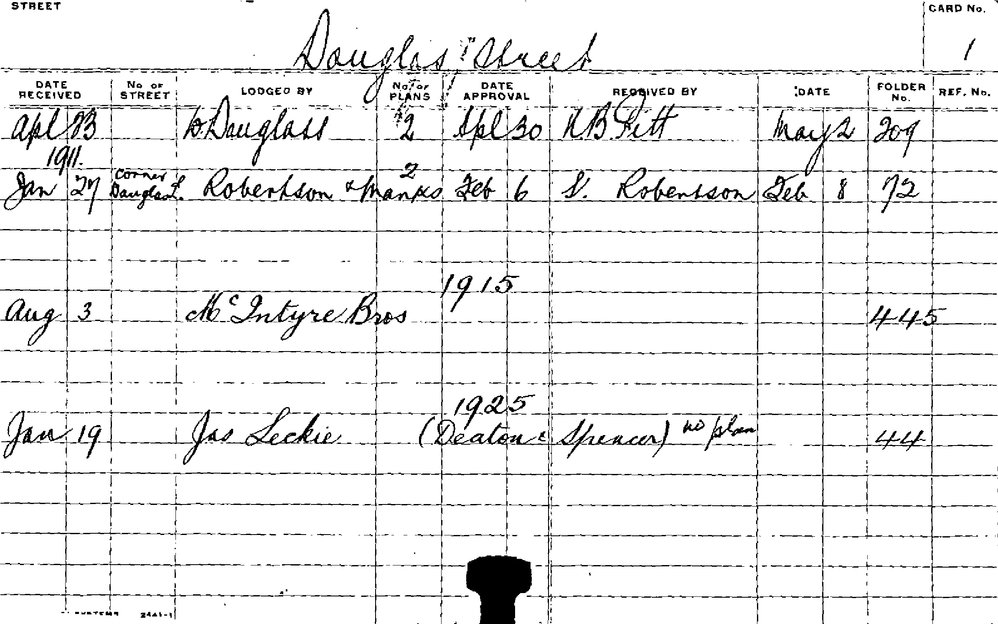 STREET
CARD No.
Douglas Street
1
DATE RECEIVED No OF STREET LODGED BY No. of PLANS DATE APPROVAL RECEIVED BY DATE FOLDER No. REF. No.
Apl 23 Douglass 2 Apl 30 Pitt May 2 209
1911.
Jan 27 corner Douglas Robertson & Manks 2 Feb 6 S. Robertson Feb 8 72
1915
Aug 3 McIntyre Bros 445
1925
Jan 19 Jas Leckie (Deaton & Spencer) no plan 44